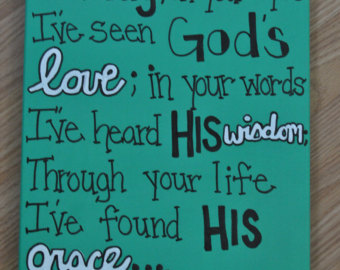 I've seen God's
love; in your words
I've heard HIS wisdom;
Through your life
I've found HIS
grace...